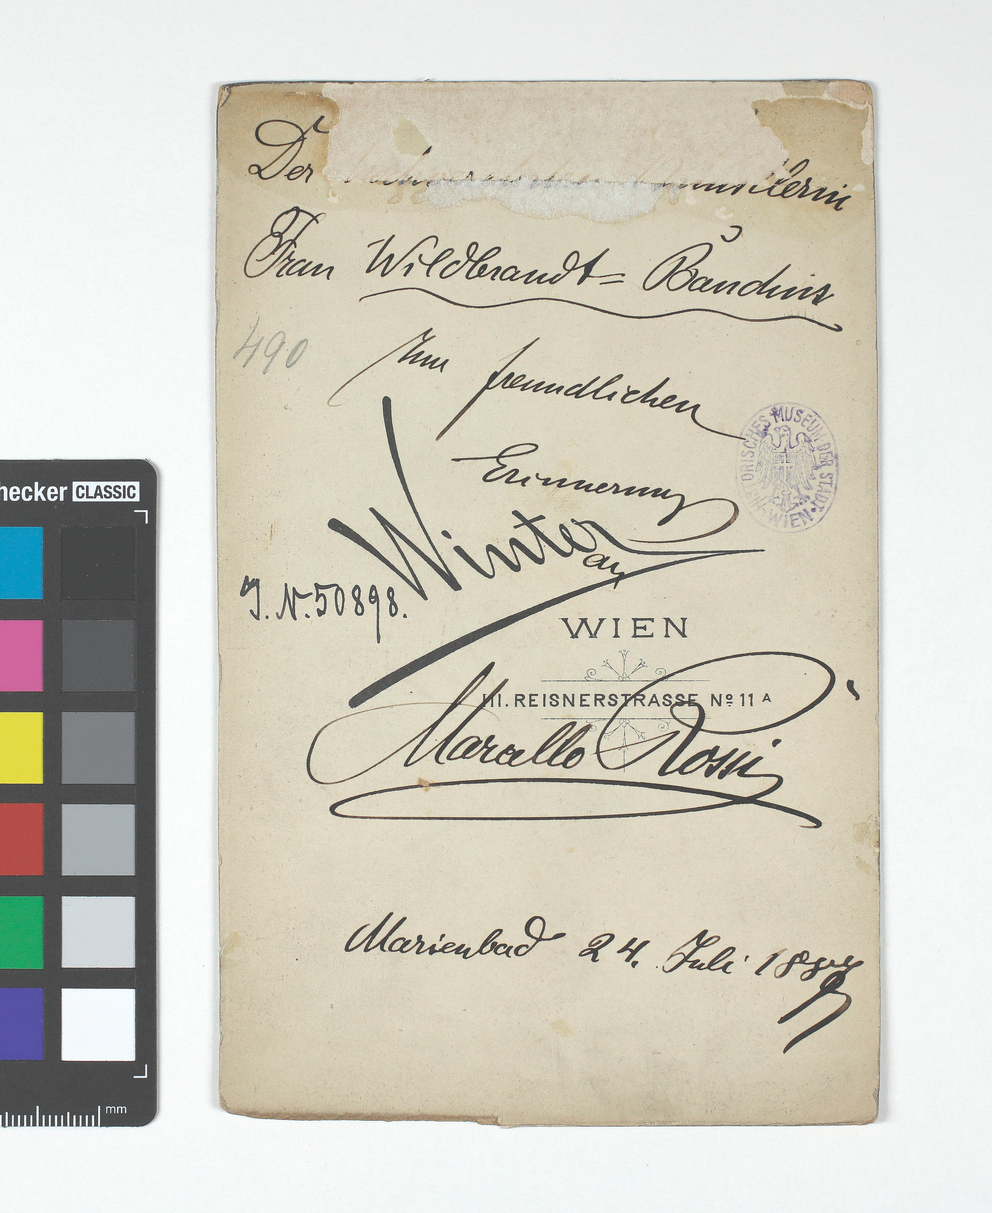 Der Künstlerin
Frau Wildbrandt=Baudius
490
zur freundlichen
Erinnerung
HISTORISCHES MUSEUM DER STADT WIEN
Winter
an
J.N. 50898.
WIEN
III. REISNERSTRASSE No 11 A
Marcello Rossi
Marienbad 24. Juli
hecker CLASSIC
mm